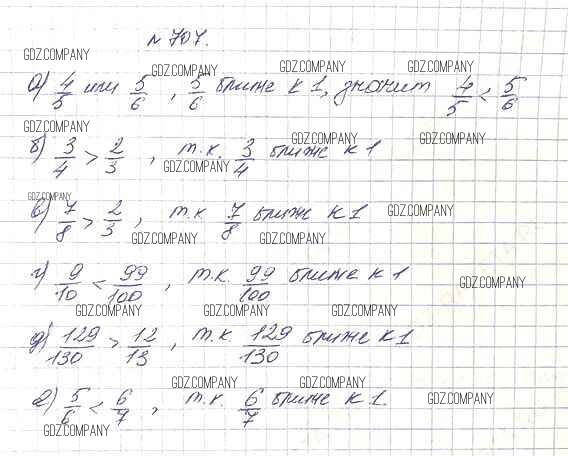 № 707.
GDZ.COMPANY
GDZ.COMPANY GDZ.COMPANY GDZ.COMPANY
а) 4/5 или 5/6, 5/6 ближе к 1, значит 4/5 < 5/6
GDZ.COMPANY
GDZ.COMPANY GDZ.COMPANY
б) 3/4 > 2/3, т.к. 3/4 ближе к 1
GDZ.COMPANY
GDZ.COMPANY
в) 7/8 > 2/3, т.к 7/8 ближе к 1 GDZ.COMPANY
GDZ.COMPANY GDZ.COMPANY
г) 9/10 < 99/100, т.к. 99/100 ближе к 1 GDZ.COMPANY
GDZ.COMPANY GDZ.COMPANY GDZ.COMPANY
д) 129/130 > 12/13, т.к. 129/130 ближе к 1
GDZ.COMPANY GDZ.COMPANY
е) 5/6 < 6/7, т.к. 6/7 ближе к 1. GDZ.COMPANY
GDZ.COMPANY